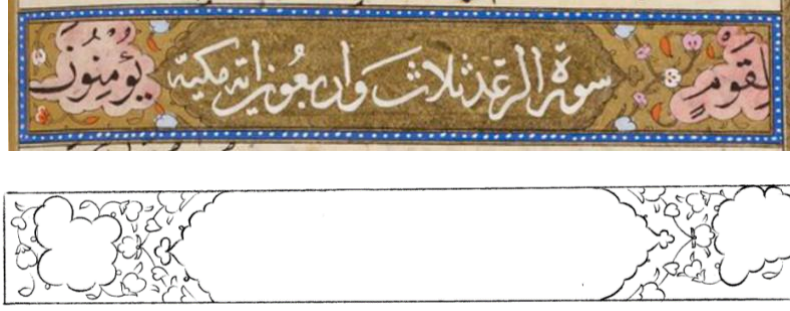 لِقَوْمٍ سورة الرّعد ثلاث واربعُون اية مكية يُؤْمِنُونَ